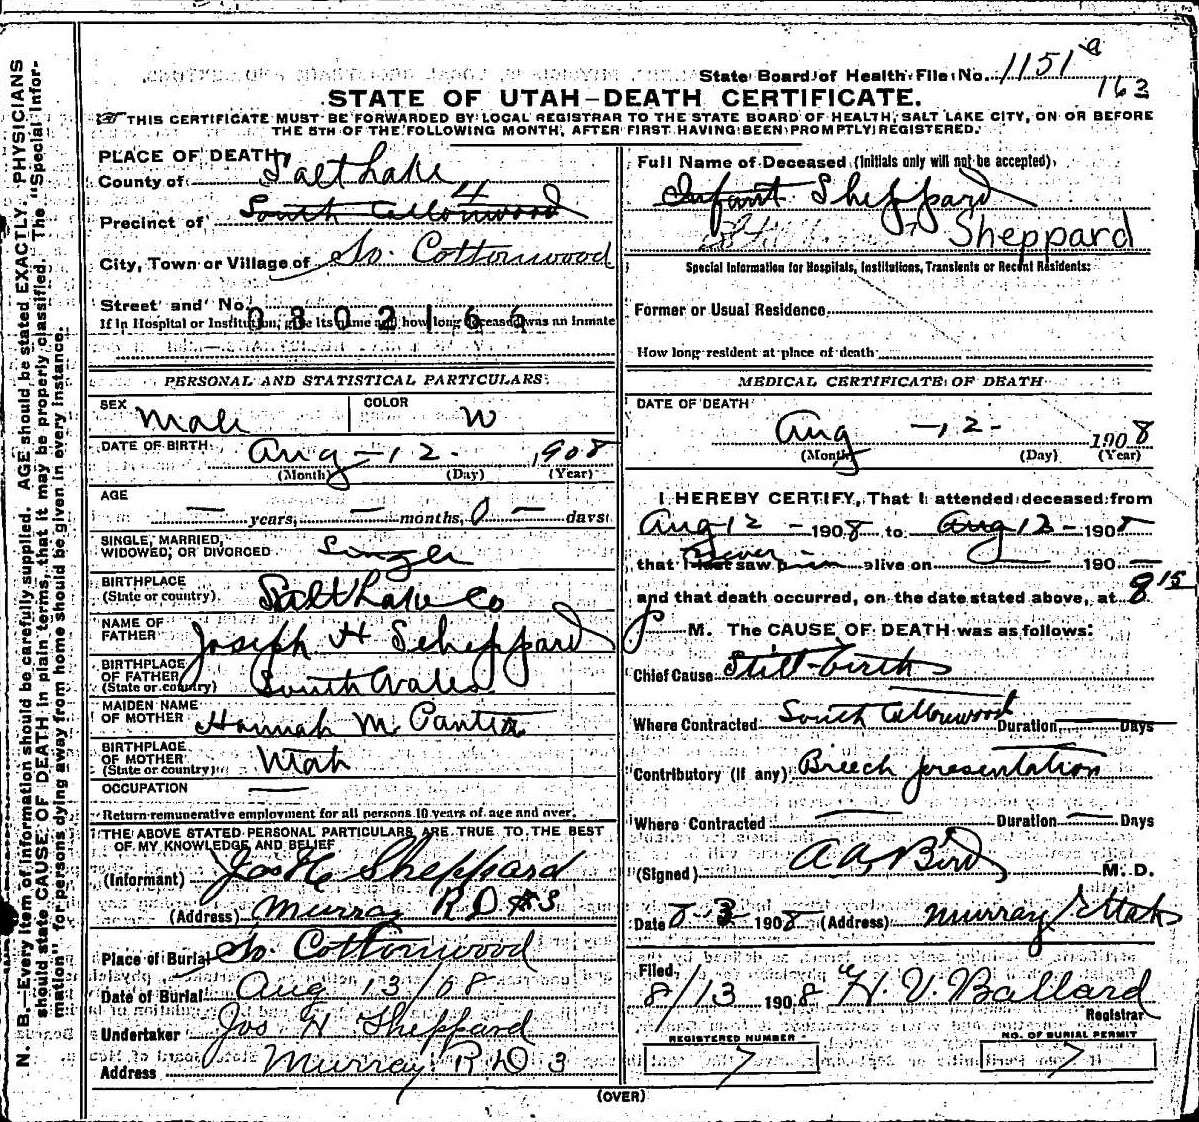 State Board of Health File No. 1151 a
163
STATE OF UTAH–DEATH CERTIFICATE.
THIS CERTIFICATE MUST BE FORWARDED BY LOCAL REGISTRAR TO THE STATE BOARD OF HEALTH, SALT LAKE CITY, ON OR BEFORE
THE 5TH OF THE FOLLOWING MONTH, AFTER FIRST HAVING BEEN PROMPTLY REGISTERED.
N. B.—Every item of information should be carefully supplied. AGE should be stated EXACTLY. PHYSICIANS
should state CAUSE OF DEATH in plain terms, that it may be properly classified. The "Special Infor-
mation" for persons dying away from home should be given in every instance.
PLACE OF DEATH,
County of Salt Lake
4
Precinct of South Cottonwood
City, Town or Village of So. Cottonwood
Street and No.
0302166
If in Hospital or Institution, give its name and how long deceased was an inmate
PERSONAL AND STATISTICAL PARTICULARS.
SEX Male COLOR W
DATE OF BIRTH Aug – 12. 1908
(Month) (Day) (Year)
AGE
— years, — months, 0 — days
SINGLE, MARRIED,
WIDOWED, OR DIVORCED Single
BIRTHPLACE
(State or country) Salt Lake Co
NAME OF
FATHER Joseph H Scheppard
BIRTHPLACE
OF FATHER
(State or country) South Wales
MAIDEN NAME
OF MOTHER Hannah M.
BIRTHPLACE
OF MOTHER
(State or country) Utah
OCCUPATION —
Return remunerative employment for all persons 10 years of age and over.
THE ABOVE STATED PERSONAL PARTICULARS ARE TRUE TO THE BEST
OF MY KNOWLEDGE AND BELIEF
(Informant) Jos H Sheppard
(Address) Murray R D #3
Place of Burial So. Cottonwood
Date of Burial Aug 13/08
Undertaker Jos H Sheppard
Address Murray R D 3
Full Name of Deceased (Initials only will not be accepted)
Infant Sheppard
Sheppard
Special Information for Hospitals, Institutions, Transients or Recent Residents:
Former or Usual Residence
How long resident at place of death
MEDICAL CERTIFICATE OF DEATH
DATE OF DEATH
Aug – 12 – 1908
(Month) (Day) (Year)
I HEREBY CERTIFY, That I attended deceased from
Aug 12 – 1908 to Aug 12 – 1908
never
that I last saw h im alive on — 190 —
and that death occurred, on the date stated above, at 8 15
P M. The CAUSE OF DEATH was as follows:
Chief Cause Still-birth
Where Contracted South Cottonwood Duration — Days
Contributory (if any) Breech presentation
Where Contracted — Duration — Days
(Signed) A A Bird M. D.
Date 8-3 1908 (Address) Murray Utah
Filed,
8/13 1908 H. V. Ballard
Registrar
REGISTERED NUMBER
7
NO. OF BURIAL PERMIT
7
(OVER)